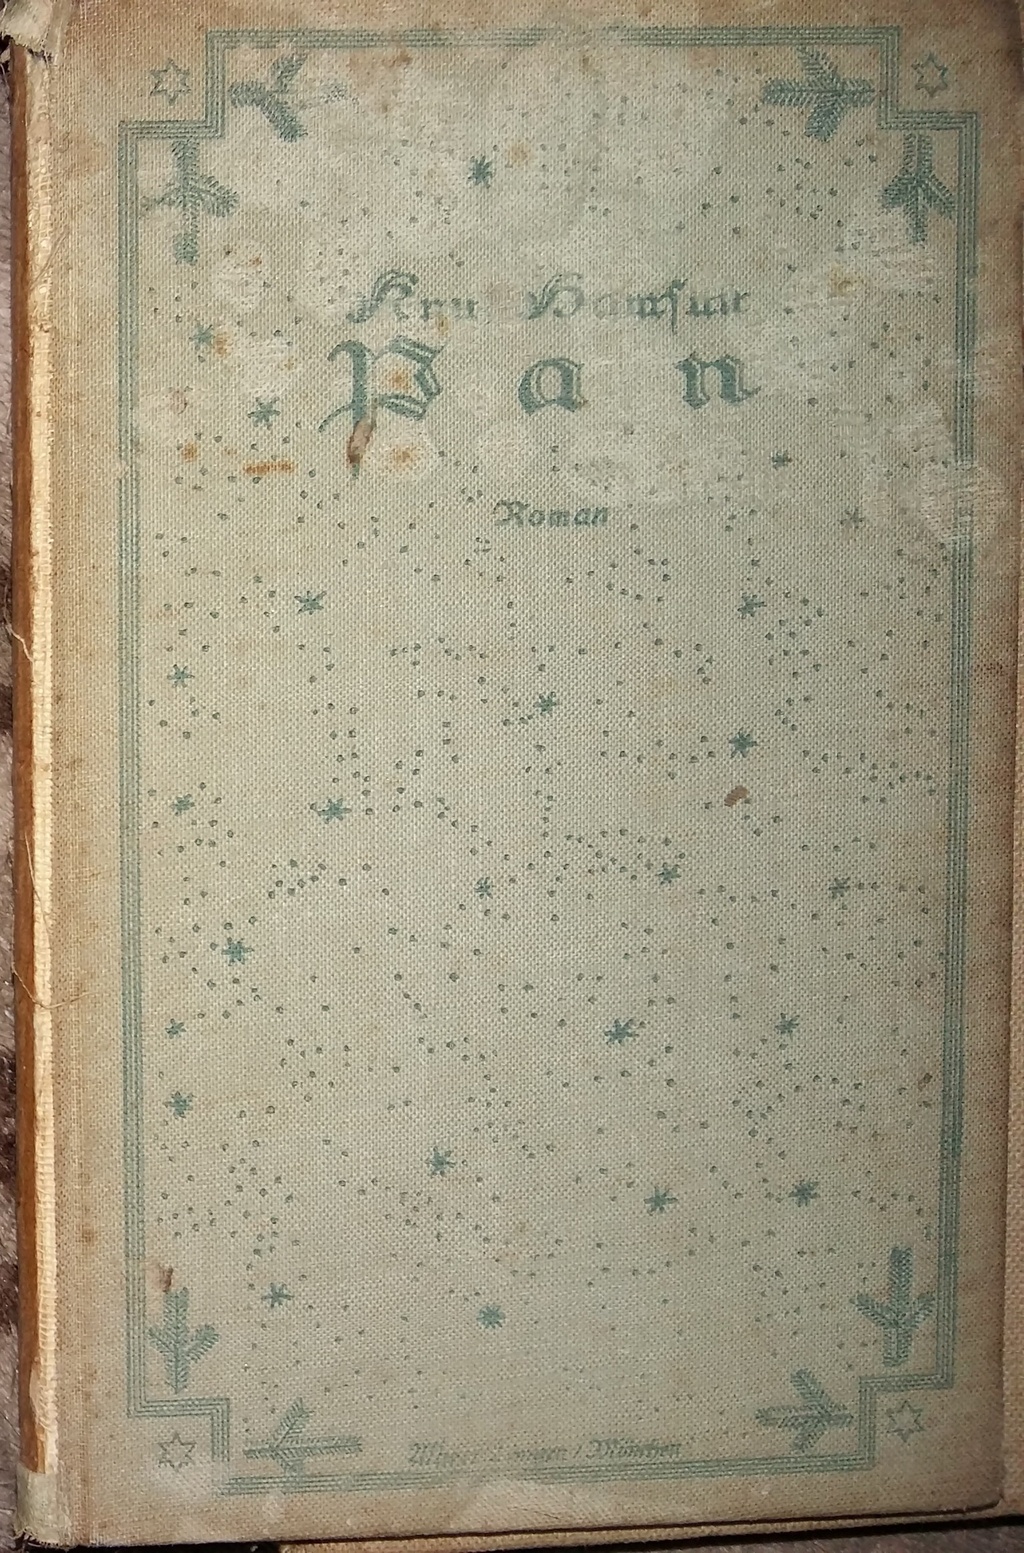 Knut Hamsun
Pan
Roman
Albert Langen / München